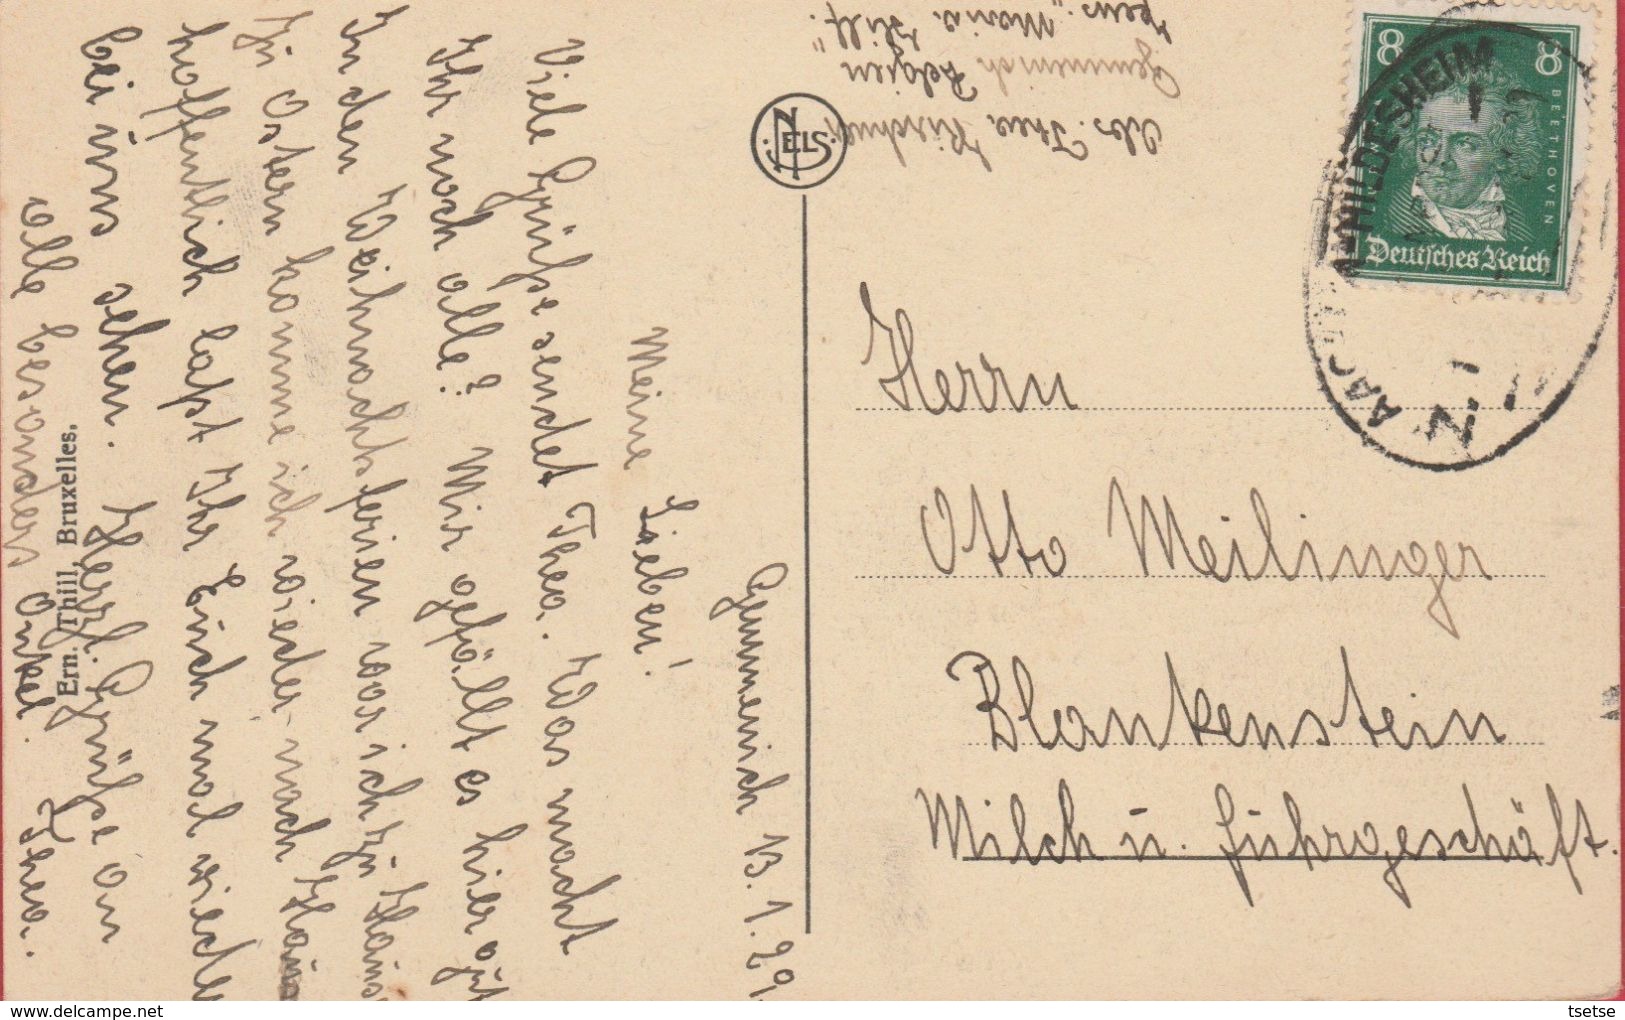 Gemmenich 13.1.29.
Meine Lieben!
Viele Grüße sendet Thea. Was macht
Ihr noch alle? Mir gefällt es hier gut
In den Weihnachtsferien war ich zu Haus
Zu Ostern komme ich wieder nach Haus
hoffentlich lasst Ihr Euch mal wieder
bei uns sehen. Herzl. Grüße an
alle besonders Onkel. Thea.
Ern. Thill, Bruxelles.
Abs. Thea Kirchner
Gemmenich Belgien
Pens. "Maria Hilf."
NELS
8 8
BEETHOVEN
Deutsches Reich
HILDESHEIM
Herrn
Otto Meilinger
Blankenstein
Milch u. Fuhrgeschäft.
tsetse